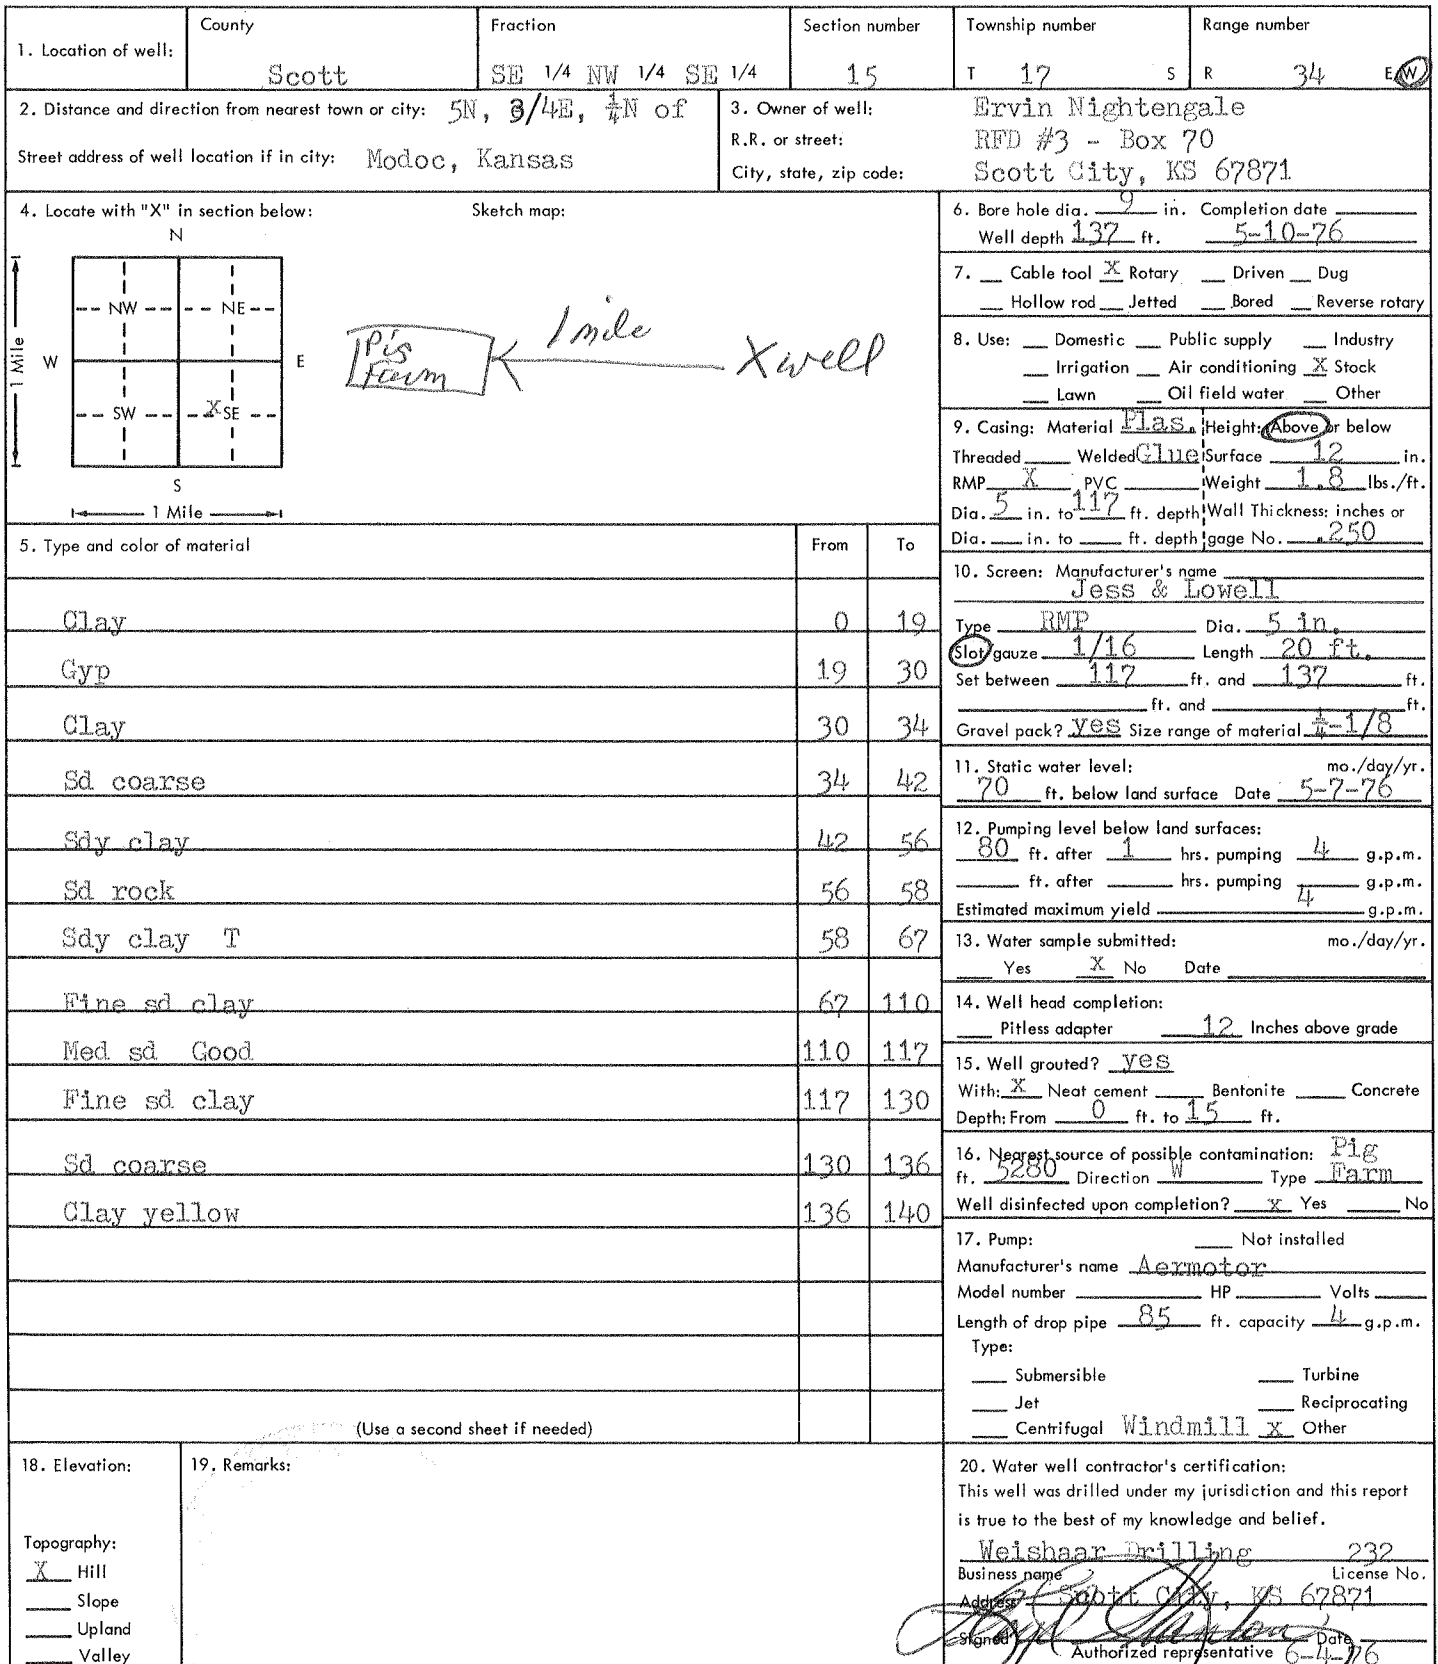 County Fraction Section number Township number Range number
1. Location of well: Scott SE 1/4 NW 1/4 SE 1/4 15 T 17 S R 34 E W
2. Distance and direction from nearest town or city: 5N, 3/4E, ¼N of
Street address of well location if in city: Modoc, Kansas
3. Owner of well: Ervin Nightengale
R.R. or street: RFD #3 - Box 70
City, state, zip code: Scott City, KS 67871
4. Locate with "X" in section below: Sketch map:
N
NW NE
W E
1 Mile
SW X SE
S
1 Mile
Pig Farm 1 mile X well
5. Type and color of material From To
Clay 0 19
Gyp 19 30
Clay 30 34
Sd coarse 34 42
Sdy clay 42 56
Sd rock 56 58
Sdy clay T 58 67
Fine sd clay 67 110
Med sd Good 110 117
Fine sd clay 117 130
Sd coarse 130 136
Clay yellow 136 140
(Use a second sheet if needed)
6. Bore hole dia. 9 in. Completion date
Well depth 137 ft. 5-10-76
7. Cable tool X Rotary Driven Dug
Hollow rod Jetted Bored Reverse rotary
8. Use: Domestic Public supply Industry
Irrigation Air conditioning X Stock
Lawn Oil field water Other
9. Casing: Material Plas. Height: Above or below
Threaded Welded Glue Surface 12 in.
RMP X PVC Weight 1.8 lbs./ft.
Dia. 5 in. to 117 ft. depth Wall Thickness: inches or
Dia. in. to ft. depth gage No. .250
10. Screen: Manufacturer's name
Jess & Lowell
Type RMP Dia. 5 in.
Slot/gauze 1/16 Length 20 ft.
Set between 117 ft. and 137 ft.
ft. and ft.
Gravel pack? yes Size range of material ¼-1/8
11. Static water level: mo./day/yr.
70 ft. below land surface Date 5-7-76
12. Pumping level below land surfaces:
80 ft. after 1 hrs. pumping 4 g.p.m.
ft. after hrs. pumping g.p.m.
Estimated maximum yield 4 g.p.m.
13. Water sample submitted: mo./day/yr.
Yes X No Date
14. Well head completion:
Pitless adapter 12 Inches above grade
15. Well grouted? yes
With: X Neat cement Bentonite Concrete
Depth: From 0 ft. to 15 ft.
16. Nearest source of possible contamination: Pig
ft. 5280 Direction W Type Farm
Well disinfected upon completion? x Yes No
17. Pump: Not installed
Manufacturer's name Aermotor
Model number HP Volts
Length of drop pipe 85 ft. capacity 4 g.p.m.
Type:
Submersible Turbine
Jet Reciprocating
Centrifugal Windmill x Other
18. Elevation:
Topography:
X Hill
Slope
Upland
Valley
19. Remarks:
20. Water well contractor's certification:
This well was drilled under my jurisdiction and this report
is true to the best of my knowledge and belief.
Weishaar Drilling 232
Business name License No.
Address Scott City, KS 67871
Signed Date
Authorized representative 6-4-76